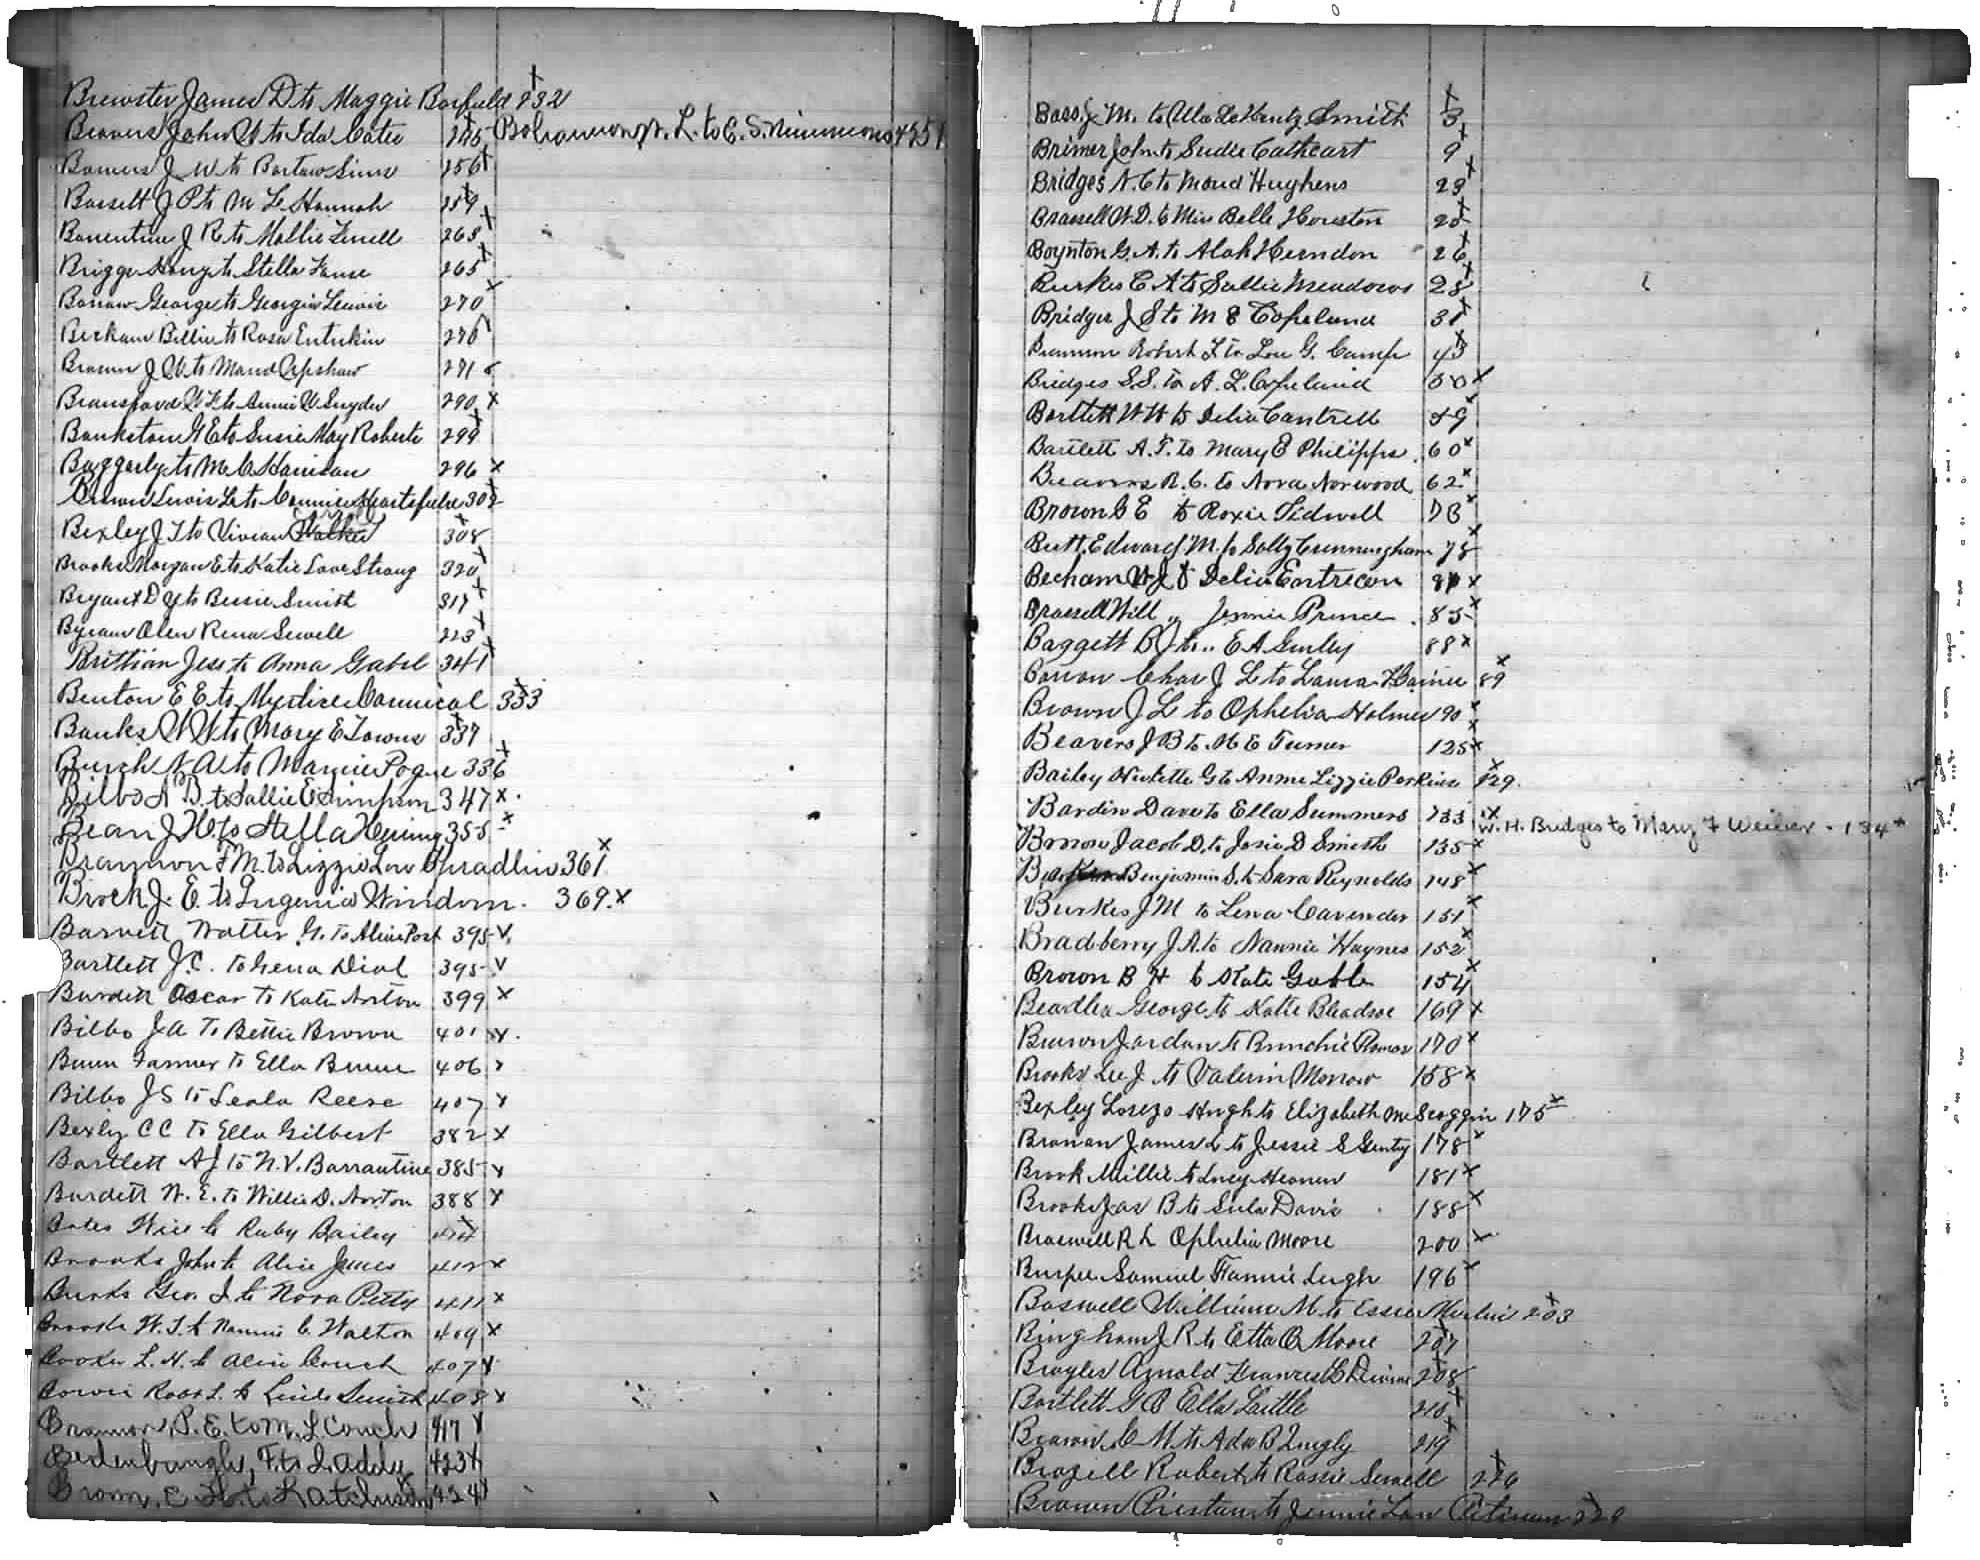 Brewster James D to Maggie Barfield 232
Beavers John W to Ida Cates 245 Bohannon L. to E. S. Nimmons 4351
Bowers J W to Bartow Sims 256
Bassett J P to M L Hannah 259
Barrentine J R to Mollie 263
Briggs to Stella 265
George to Georgia 270
Beckam Billie to Rosa Entrekin 276
Brown J W to Maud Upshaw 271
Bransford W F to Annie W Snyder 290
Bankston G E to Susie May Roberts 299
Baggarly to M C Harrison 296
Brown Lewis L to Connie 302
Bexley J T to Vivian Walker 308
Brooks Morgan E to Katie Love Strong 320
Bryant D Y to Bessie Smith 317
Byram Olen Rena Sewell 223
Brittian Jess to Anna Gabel 341
Benton E E to Myrtice Carmical 333
Banks W W to Mary E Towns 337
Burch N A to Mamie Pogue 336
Bilbo A B. to Sallie E Simpson 347 x
Bean J W. to Stella Herring 355 x
Brannon F M. to Lizzie Lou Spradlin 361
Brock J. E. to Eugenia Windom. 369. x
Barnett Walter G. to Aline Post 395
Bartlett J. C. to Gena Dial 395
Burdett Oscar to Kate Norton 399 x
Bilbo J A to Bettie Brown 401 x
Bunn Farmer to Ella Bunn 406
Bilbo J S to Leola Reese 407
Bexley C C to Ella Gilbert 382 x
Bartlett A J to N. V. Barrantine 385 x
Burdett W. E. to Willie D. Norton 388 x
Bates to Ruby Bailey 414
Brooks John to Alice James 412 x
Burks Geo. I to Nora Petty 411 x
Brooks W. T. to Nannie C. Walton 409 x
L. H. to Alice Couch 407
Robt L. to Smith 408 x
Brannon P. E. to M. L Couch 417
Bedenbaugh, F. to L. Addy 423
Brown, C H to L 424
Bass J. M. to Ella Smith 3
Brimer John to Sudie Cathcart 9
Bridges A. C to Maud Hughens 23
Brassell W. D. to Miss Belle Houston 20
Boynton G. A. to Alah Herndon 26
Burkes C. A to Sallie Meadows 28
Bridges J S to M E Copeland 31
Brannon Robert L to Lou G. Camp 43
Bridges S. S. to A. L. Copeland 50 x
Bartlett W H to Delia Cantrell 59
Bartlett A. F. to Mary E Philipps 60 x
Beavers R. C. to Nora Norwood 62 x
Brown G E to Roxie Tidwell 73
Butt Edward M. to Sally Cunningham 78
Becham W J to Delia Entrecon 81 x
Brassell Will " Jennie Prince 85
Baggett B J to E A Gurley 88 x
Bowen Chas J L to Laura Hainie 89
Brown J L to Ophelia Holmes 90 x
Beavers J B to M E Turner 125 x
Bailey G to Annie Lizzie Perkins 129.
Bardin Dave to Ella Summers 133 W. H. Bridges to Mary F Weider - 134 x
Brown Jacob D. to Josie D Smith 135
Benjamin S. to Sara Reynolds 148 x
Burkes J M to Lena Cavender 151
Bradberry J. A. to Nannie Haynes 152
Brown B H to Kate Gable 154
George to Katie Bledsoe 169 x
Brown Jordan to 170 x
Brooks Lee J. to Valerin Morrow 158 x
Bexley Lorezo Hugh to Elizabeth McScoggin 175 x
Bronan James L to Jessie S Gentry 178
Brook Millie to Lucy 181 x
Brooks Jas B to Lula Davis 188 x
Braswell R L Ophelia Moore 200
Burpee Samuel Fannie Leigh 196
Boswell William M. to Essie Martin 203
Bingham J R to Etta O Moore 207
Broyles Arnold Frances 208
Bartlett G B Ella Little 210
Brown C M to Ada B 219
Brazell Robert to Rossie Sewell 226
Brown Preston to Jennie Lou